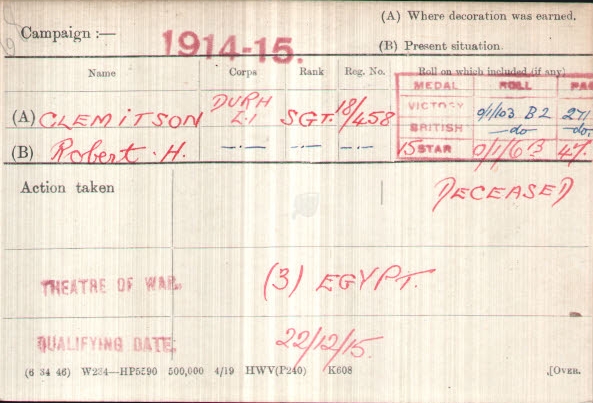 (A) Where decoration was earned.
Campaign :— 1914-15.
(B) Present situation.
Name Corps Rank Reg. No. Roll on which included (if any)
MEDAL ROLL PAG
(A) CLEMITSON DURH L.I SGT. 18/458
VICTORY 0/1/103 B2 271
BRITISH —do— —do.
(B) Robert. H. —·— —·— —·—
15 STAR 0/1/6 B 47.
Action taken
DECEASED
THEATRE OF WAR. (3) EGYPT.
QUALIFYING DATE. 22/12/15.
(6 34 46) W234—HP5590 500,000 4/19 HWV(P240) K608 [OVER.